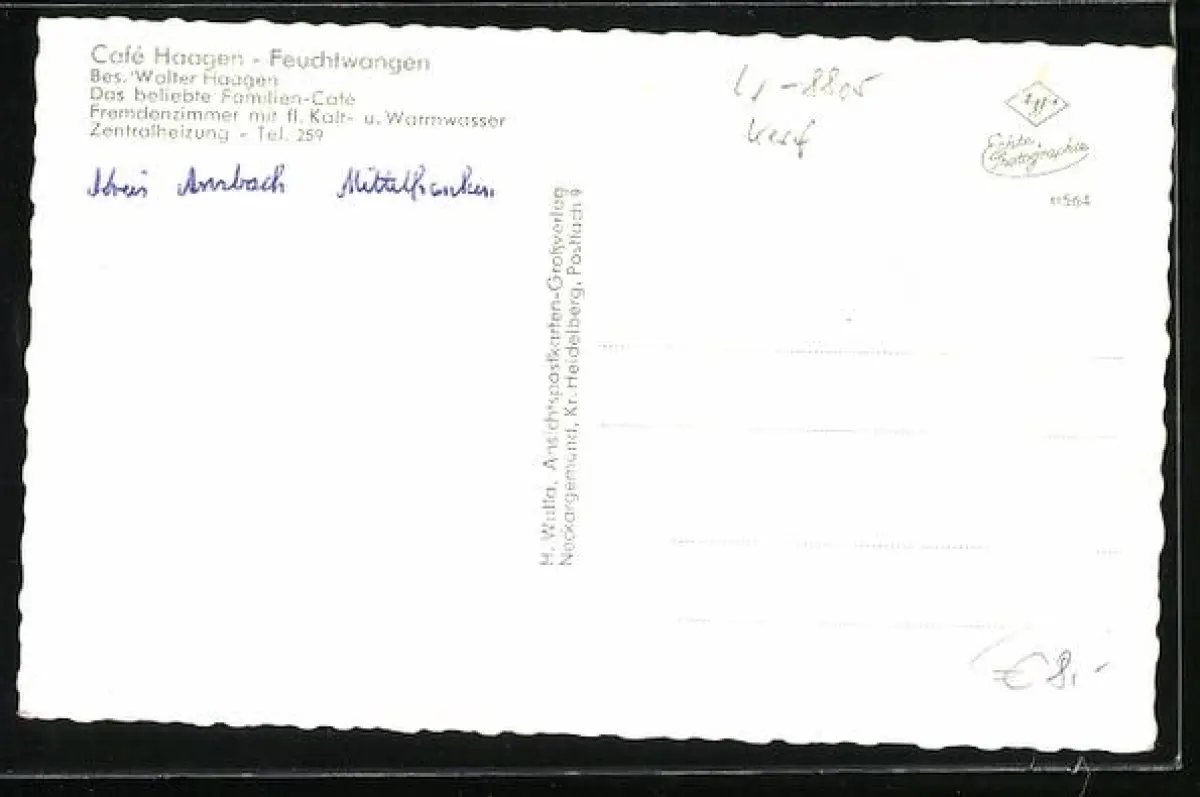 Café Haagen - Feuchtwangen
Bes. Walter Haagen
Das beliebte Familien-Café
Fremdenzimmer mit fl. Kalt- u. Warmwasser
Zentralheizung - Tel. 259
Kreis Ansbach Mittelfranken
H. Watta, Ansichtspostkarten-Großverlag
Neckargemünd, Kr. Heidelberg, Postfach 9
Echte
Photographie
€ 8,-